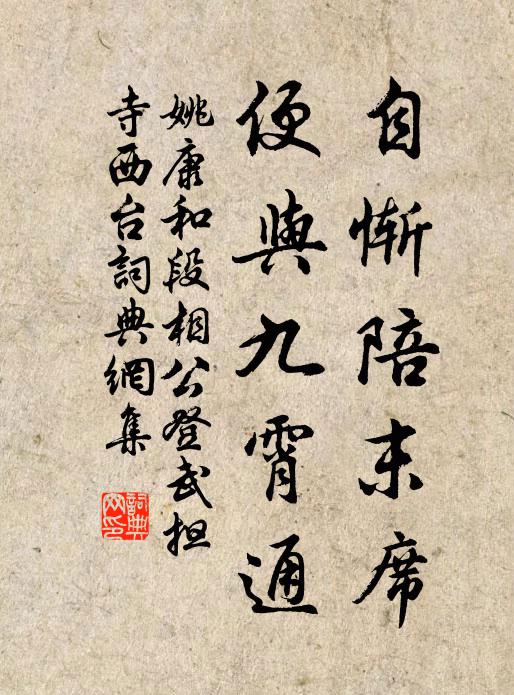 自慚陪末席
便與九霄通
姚康和段相公登武担
寺西台詞典網集
詞典網印